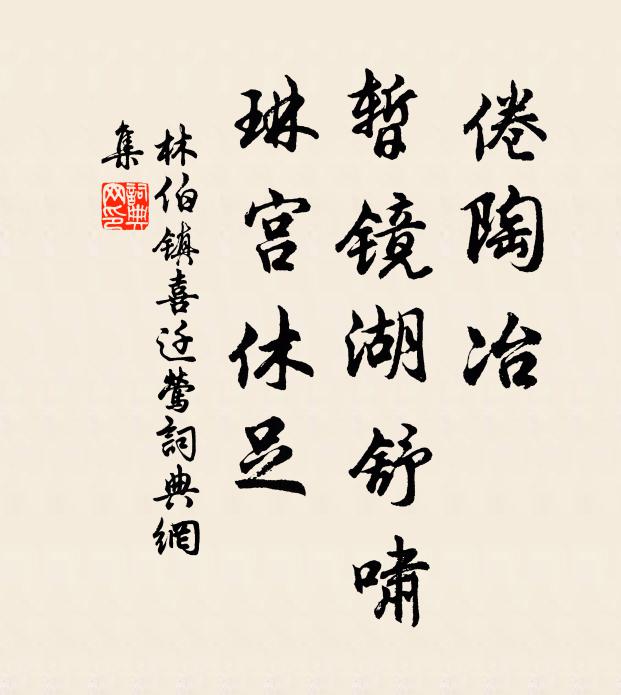 倦陶冶
暂镜湖舒啸
琳宫休足
林伯镇喜迁莺詞典網
集
詞典
网印